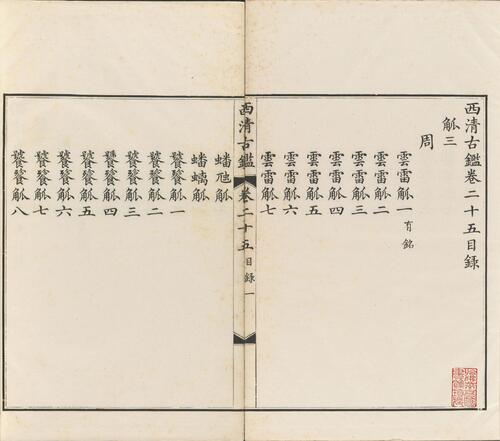 西清古鑑卷二十五目錄
觚三
周
雲雷觚一 有銘
雲雷觚二
雲雷觚三
雲雷觚四
雲雷觚五
雲雷觚六
雲雷觚七
西清古鑑 卷二十五 目錄 一
蟠虺觚
蟠螭觚
饕餮觚一
饕餮觚二
饕餮觚三
饕餮觚四
饕餮觚五
饕餮觚六
饕餮觚七
饕餮觚八